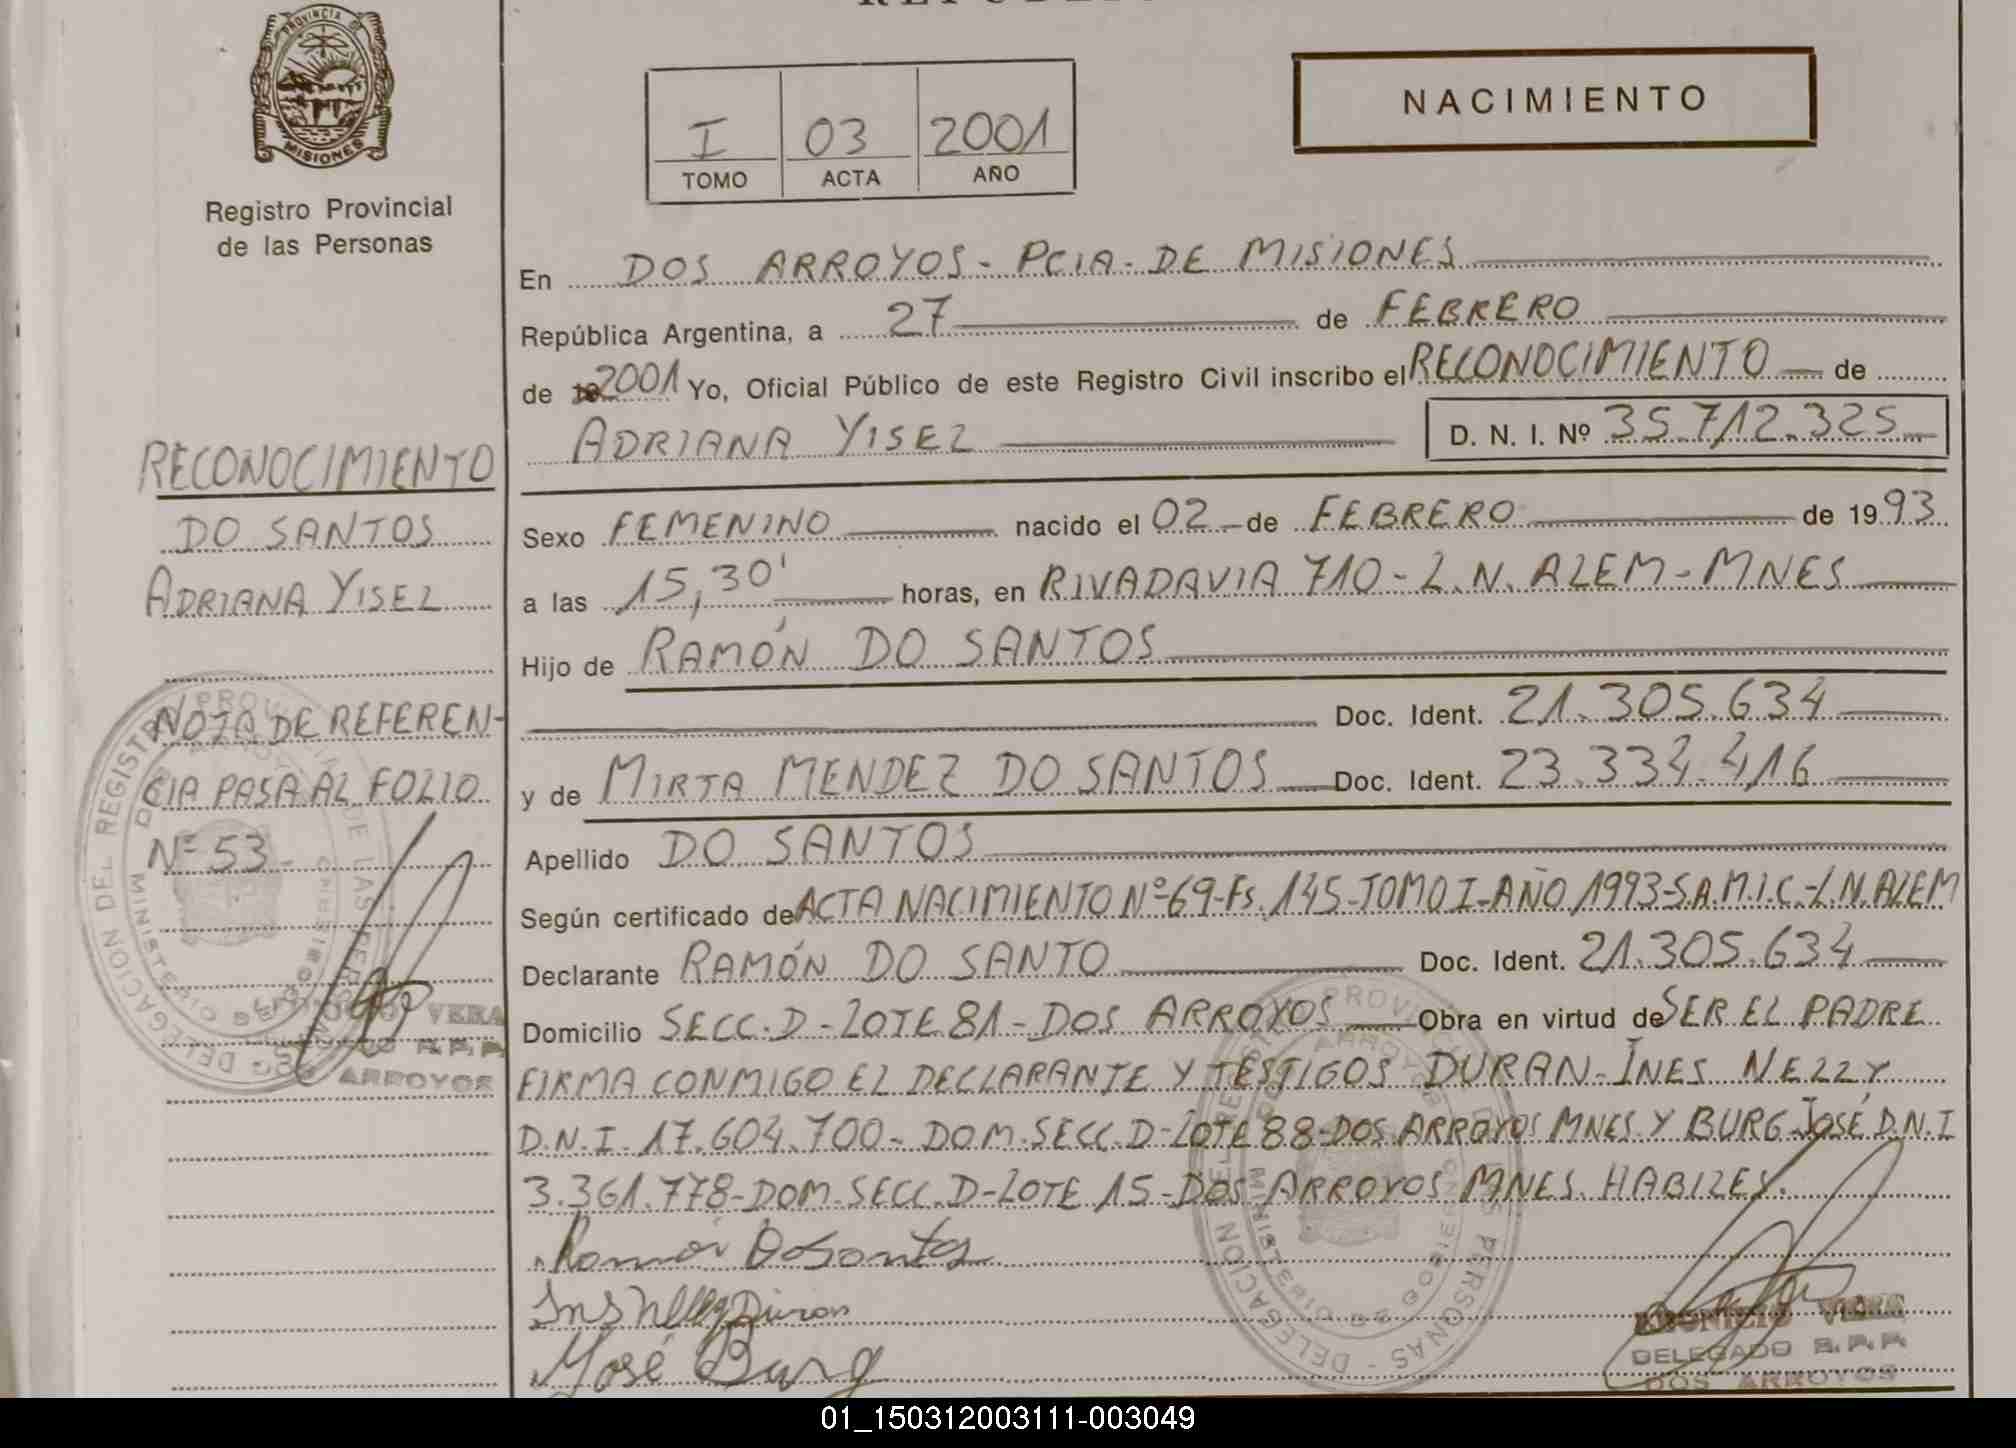 PROVINCIA DE
MISIONES
Registro Provincial
de las Personas
RECONOCIMIENTO
DO SANTOS
ADRIANA YISEL
NOTA DE REFEREN-
CIA PASA AL FOLIO
Nº 53
VERA
R.P.P.
ARROYOS
I 03 2001
TOMO ACTA AÑO
NACIMIENTO
En DOS ARROYOS - PCIA - DE MISIONES
República Argentina, a 27 de FEBRERO
de 2001 Yo, Oficial Público de este Registro Civil inscribo el RECONOCIMIENTO de
ADRIANA YISEL D. N. I. Nº 35.712.325
Sexo FEMENINO nacido el 02 de FEBRERO de 1993
a las 15,30' horas, en RIVADAVIA 710 - L.N. ALEM - MNES
Hijo de RAMÓN DO SANTOS
Doc. Ident. 21.305.634
y de MIRTA MENDEZ DO SANTOS Doc. Ident. 23.334.416
Apellido DO SANTOS
Según certificado de ACTA NACIMIENTO Nº 69-Fs. 145-TOMO I-AÑO 1993-S.A.M.I.C.-L.N.ALEM
Declarante RAMÓN DO SANTO Doc. Ident. 21.305.634
Domicilio SECC. D - LOTE 81 - DOS ARROYOS Obra en virtud de SER EL PADRE
FIRMA CONMIGO EL DECLARANTE Y TESTIGOS DURAN - INES NELLY
D.N.I. 17.604.700 - DOM. SECC. D - LOTE 88 - DOS ARROYOS MNES. Y BURG JOSÉ D.N.I
3.361.778 - DOM. SECC. D - LOTE 15 - DOS ARROYOS MNES. HABILES.
Ramón Dosantos
Ins Nelly Duran
José Burg
VERA
DELEGADO R.P.P.
DOS ARROYOS
01_150312003111-003049